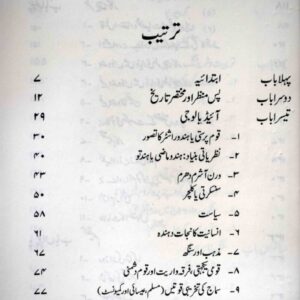 ترتیب
پہلا باب ابتدائیہ ۷
دوسرا باب پس منظر اور مختصر تاریخ ۱۲
تیسرا باب آئیڈیالوجی ۲۹
۱- قوم پرستی یا ہندو راشٹر کا تصور ۳۰
۲- نظریاتی بنیاد: ہندو ماضی یا ہندتو ۴۰
۳- ورن آشرم دھرم ۴۳
۴- سنسکرتی یا کلچر ۵۰
۵- سیاست ۵۸
۶- انسانیت کا نجات دہندہ ۶۱
۷- مذہب اور سنگھ ۶۷
۸- قومی یکجہتی، فرقہ واریت اور قوم دشمنی ۷۴
۹- سماج کی تخریبی قوتیں (مسلم، عیسائی اور کمیونسٹ) ۷۷